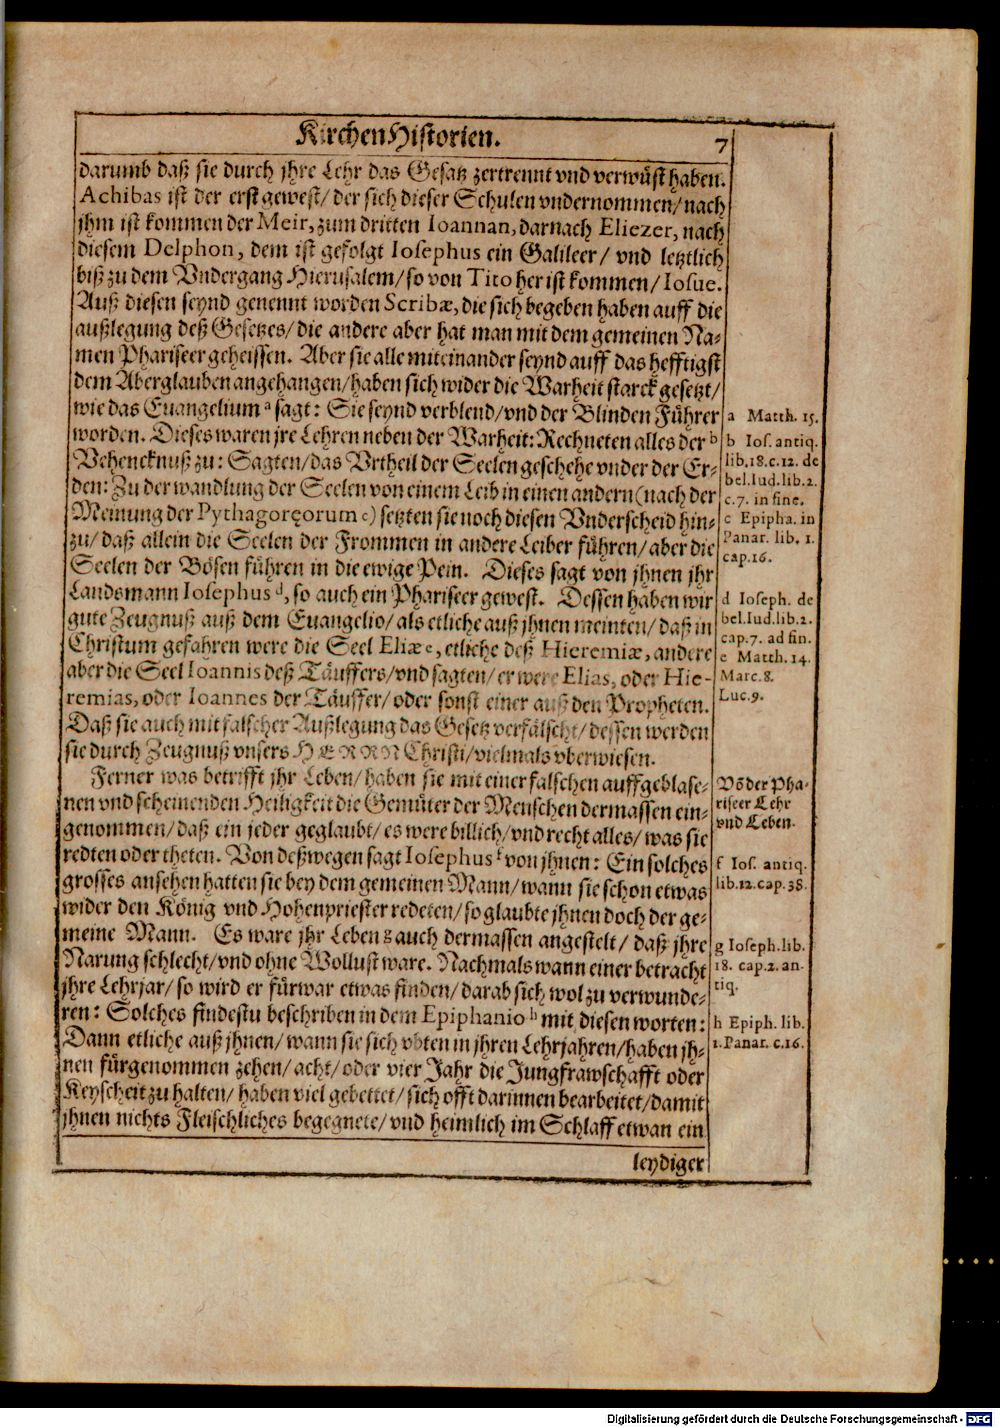 KirchenHistorien.
7
darumb daß sie durch jhre Lehr das Gesatz zertrennt vnd verwüst haben.
Achibas ist der erst gewest/ der sich dieser Schulen vndernommen/ nach
jhm ist kommen der Meir, zum dritten Ioannan, darnach Eliezer, nach
diesem Delphon, dem ist gefolgt Iosephus ein Galileer/ vnd letztlich
biß zu dem Vndergang Hierusalem/ so von Tito her ist kommen/ Iosue.
Auß diesen seynd genennt worden Scribæ, die sich begeben haben auff die
außlegung deß Gesetzes/ die andere aber hat man mit dem gemeinen Na-
men Phariseer geheissen. Aber sie alle miteinander seynd auff das hefftigst
dem Aberglauben angehangen/ haben sich wider die Warheit starck gesetzt/
wie das Euangelium a sagt: Sie seynd verblend/ vnd der Blinden Führer
worden. Dieses waren jre Lehren neben der Warheit: Rechneten alles der b
Vehencknuß zu: Sagten/ das Vrtheil der Seelen geschehe vnder der Er-
den: Zu der wandlung der Seelen von einem Leib in einen andern (nach der
Meinung der Pythagoręorum c) setzten sie noch diesen Vnderscheid hin-
zu/ daß allein die Seelen der Frommen in andere Leiber führen/ aber die
Seelen der Bösen führen in die ewige Pein. Dieses sagt von jhnen jhr
Landsmann Iosephus d, so auch ein Phariseer gewest. Dessen haben wir
gute Zeugnuß auß dem Euangelio/ als etliche auß jhnen meinten/ daß in
Christum gefahren were die Seel Eliæ e, etliche deß Hieremiæ, andere
aber die Seel Ioannis deß Täuffers/ vnd sagten/ er were Elias, oder Hie-
remias, oder Ioannes der Täuffer/ oder sonst einer auß den Propheten.
Daß sie auch mit falscher Außlegung das Gesetz verfälscht/ dessen werden
sie durch Zeugnuß vnsers HERRN Christi/ vielmals vberwiesen.
Ferner was betrifft jhr Leben/ haben sie mit einer falschen auffgeblase-
nen vnd scheinenden Heiligkeit die Gemüter der Menschen dermassen ein-
genommen/ daß ein jeder geglaubt/ es were billich/ vnd recht alles/ was sie
redten oder theten. Von deßwegen sagt Iosephus f von jhnen: Ein solches
grosses ansehen hatten sie bey dem gemeinen Mann/ wann sie schon etwas
wider den König vnd Hohenpriester redeten/ so glaubte jhnen doch der ge-
meine Mann. Es ware jhr Leben g auch dermassen angestelt/ daß jhre
Narung schlecht/ vnd ohne Wollust ware. Nachmals wann einer betracht
jhre Lehrjar/ so wird er fürwar etwas finden/ darab sich wol zu verwunde-
ren: Solches findestu beschriben in dem Epiphanio h mit diesen worten:
Dann etliche auß jhnen/ wann sie sich vbten in jhren Lehrjahren/ haben jh-
nen fürgenommen zehen/ acht/ oder vier Jahr die Jungfrawschafft oder
Keyscheit zu halten/ haben viel gebettet/ sich offt darinnen bearbeitet/ damit
jhnen nichts Fleischliches begegnete/ vnd heimlich im Schlaff etwan ein
leydiger
a Matth. 15.
b Ios. antiq.
lib. 18. c. 12. de
bel. Iud. lib. 2.
c. 7. in fine.
c Epipha. in
Panar. lib. 1.
cap. 16.
d Ioseph. de
bel. Iud. lib. 2.
cap. 7. ad fin.
e Matth. 14.
Marc. 8.
Luc. 9.
Võ der Pha-
riseer Lehr
vnd Leben.
f Ios. antiq.
lib. 12. cap. 38.
g Ioseph. lib.
18. cap. 2. an-
tiq.
h Epiph. lib.
1. Panar. c. 16.
Digitalisierung gefördert durch die Deutsche Forschungsgemeinschaft - DFG